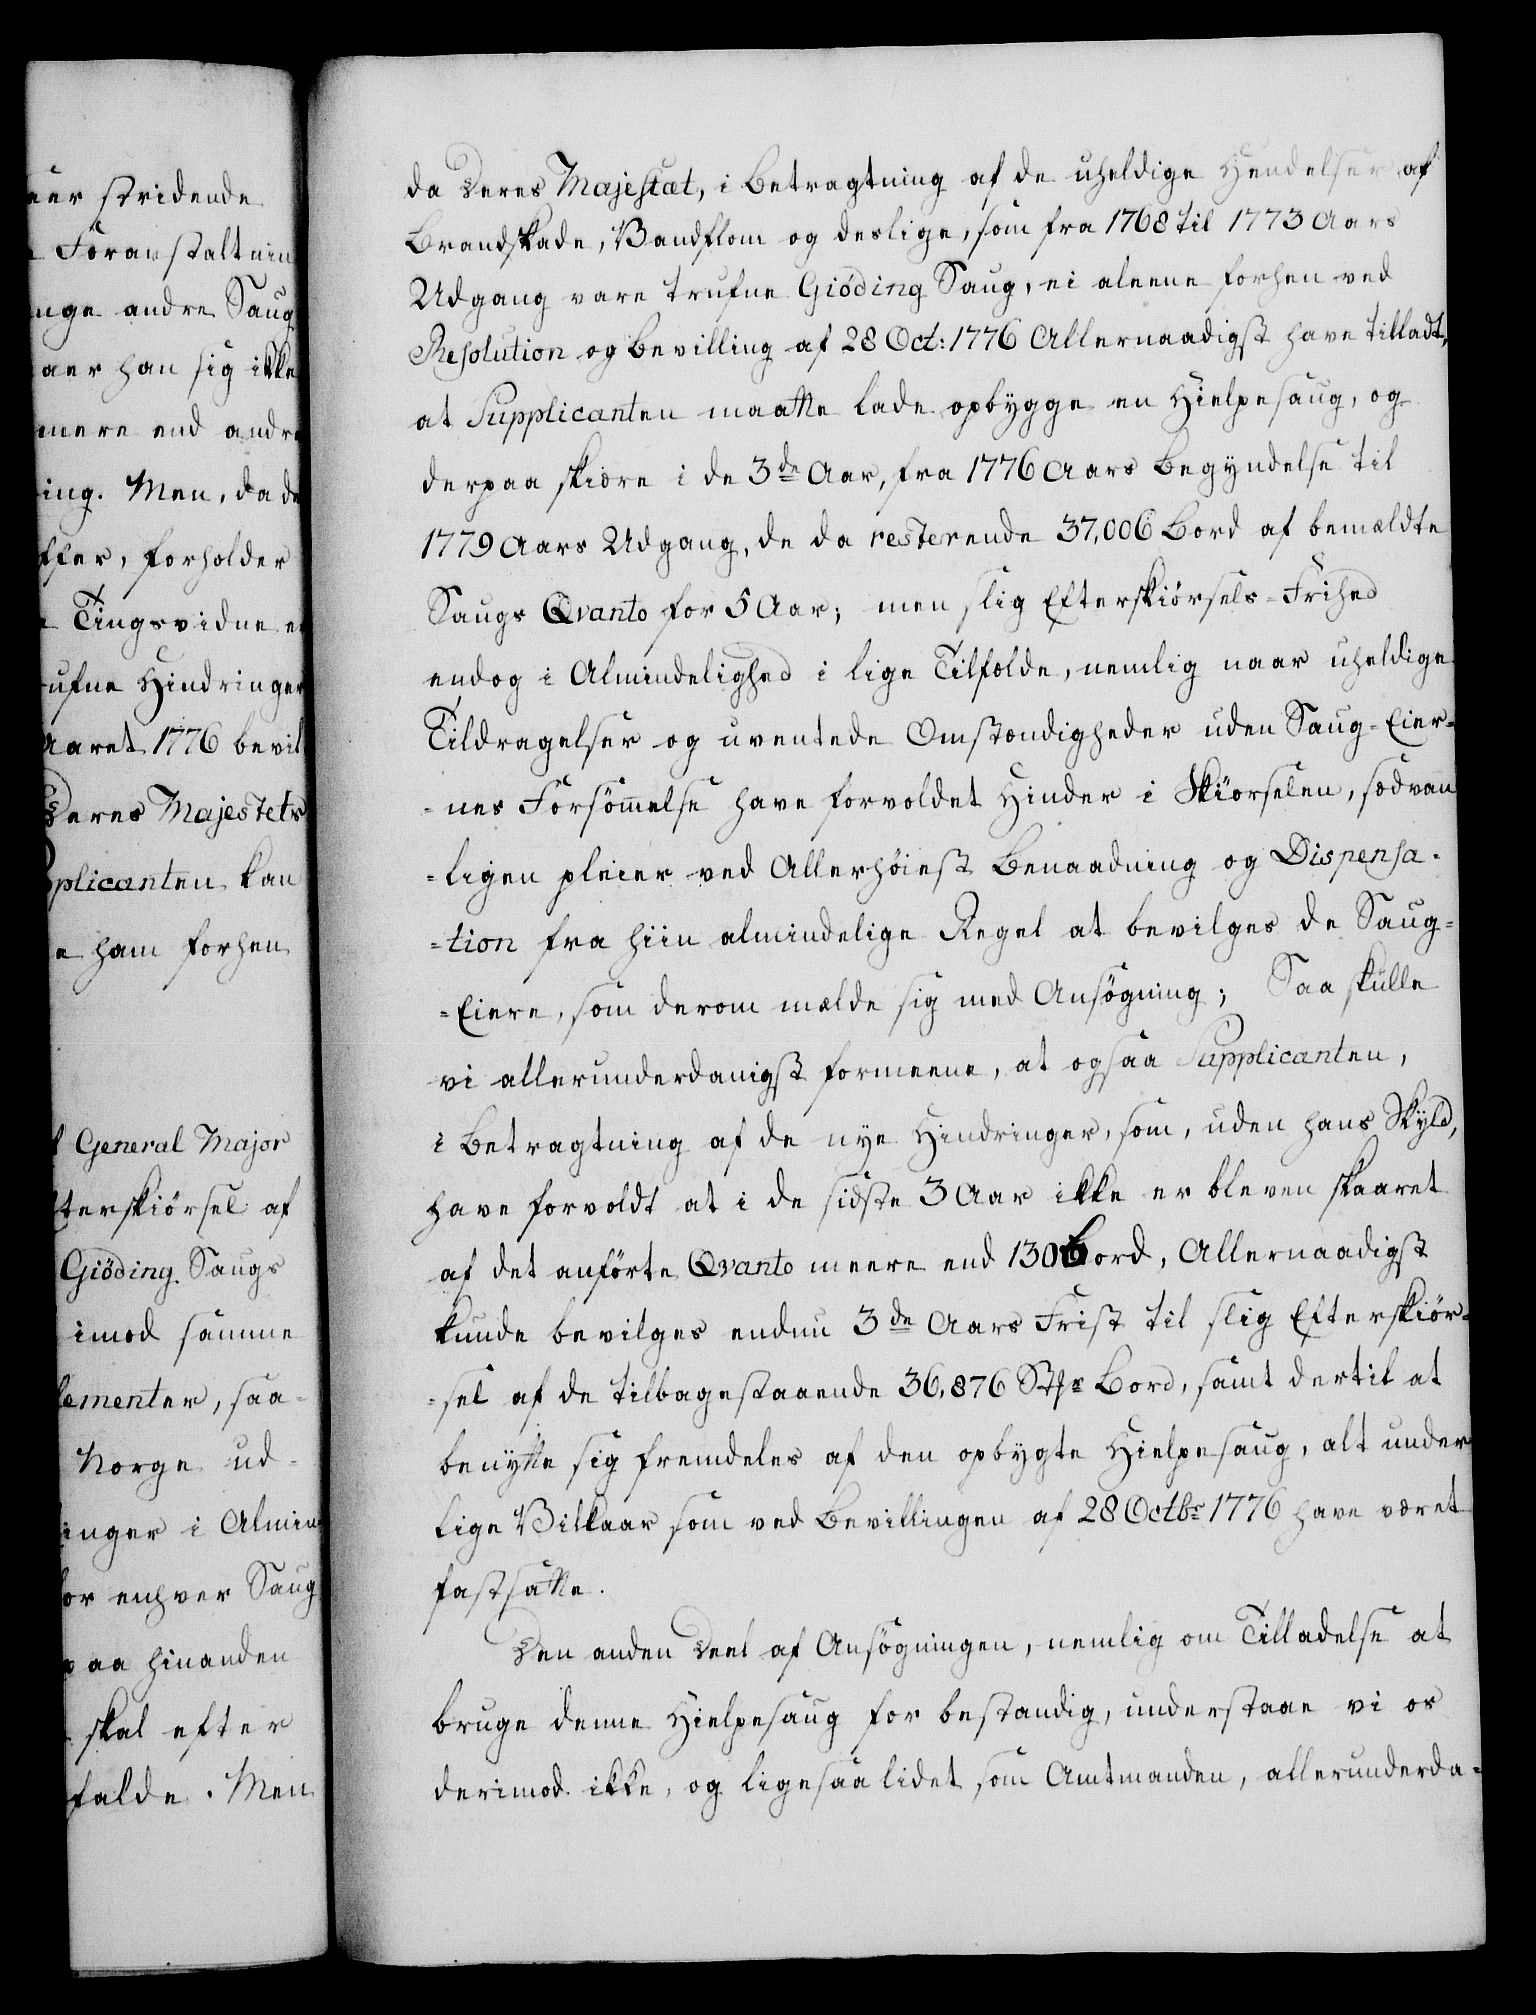 eer stridende
Foranstaltnin
nge andre Saug
aer han sig ikke
mere end andre
ing. Men, da de
ffer, forholder
Tingsvidne er
rufne Hindringer
Aaret 1776 bevil
Deres Majestets
pplicanten kan
e ham forhen
General Major
fterskiörsel af
Giöding Saugs
imod samme
lementer, saa-
Norge ud-
inger i Almin
for enhver Saug
paa hinanden
skal efter
falde. Men
da Deres Majestæt, i Betragtning af de uheldige Hendelser af
Brandskade, Vandflom og deslige, som fra 1768 til 1773 Aars
Udgang vare trufne Giöding Saug, ei aleene forhen ved
Resolution og Bevilling af 28 Oct: 1776 Allernaadigst have tilladt,
at Supplicanten maatte lade opbygge en Hielpesaug, og
derpaa skiære i de 3de Aar, fra 1776 Aars Begyndelse til
1779 Aars Udgang, de da resterende 37,006 Bord af bemældte
Saugs Qvanto for 5 Aar; men slig Efterskiörsels-Frihed
endog i Almindelighed i lige Tilfælde, nemlig naar uheldige
Tildragelser og uventede Omstændigheder uden Saug-Eier=
=nes Forsömmelse have forvoldet Hinder i Skiørselen, sædvan
=ligen pleier ved Allerhöiest Benaadning og Dispensa=
=tion fra hiin almindelige Regel at bevilges de Saug=
=Eiere, som derom mælde sig med Ansögning; Saa skulle
vi allerunderdanigst formeene, at ogsaa Supplicanten,
i Betragtning af de nye Hindringer, som, uden hans Skyld,
have forvoldt at i de sidste 3 Aar ikke er bleven skaaret
af det anförte Qvanto meere end 130 Bord, Allernaadigst
kunde bevilges endnu 3de Aars Frist til slig Efterskiör=
=sel af de tilbagestaaende 36,876 Stkr Bord, samt dertil at
benytte sig fremdeles af den opbygte Hielpesaug, alt under
lige Vilkaar som ved Bevillingen af 28 Octbr 1776 have været
fastsatte.
Den anden Deel af Ansögningen, nemlig om Tilladelse at
bruge denne Hielpesaug for bestandig, understaae vi os
derimod ikke, og ligesaa lidet som Amtmanden, allerunderda=